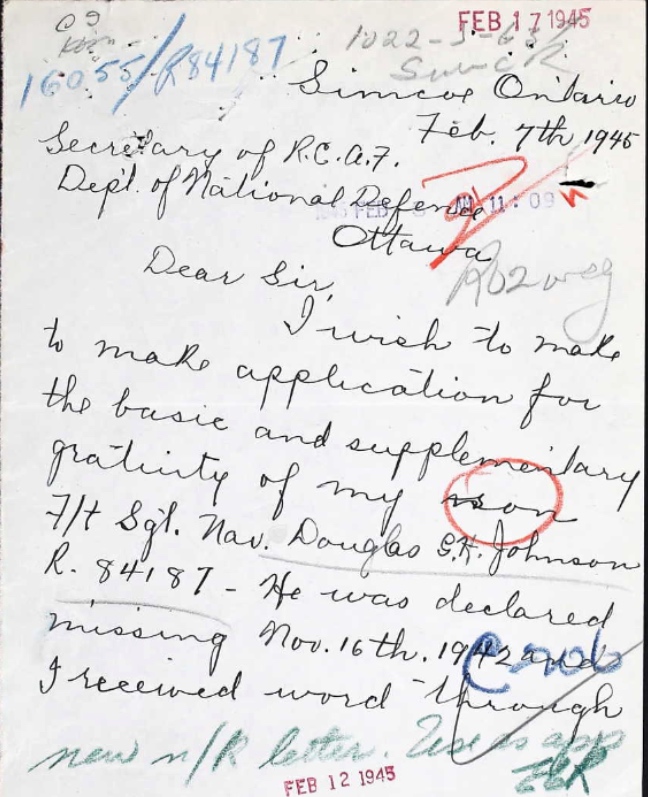 FEB 17 1945
16055/R84187
Simcoe Ontario
Feb. 7th 1945
Secretary of R.C.A.F.
Dept. of National Defence
11:09
Ottawa
Dear Sir,
I wish to make
to make application for
the basic and supplementary
gratuity of my son
F/t Sgt. Nav. Douglas G.H. Johnson
R. 84187 - He was declared
missing Nov. 16th. 1942 and
I received word through
new n/k letter. Use as app
FEB 12 1945